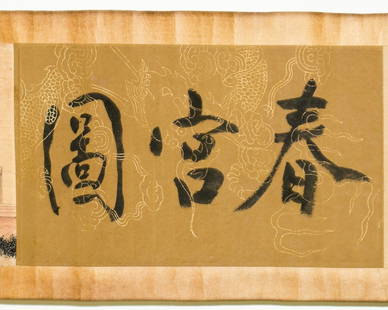 春宮圖